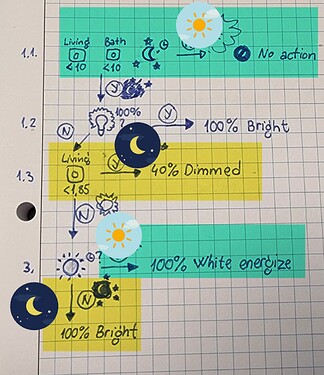 1.1. Living Bath
<10 <10 No action
Y
1.2 100% ? Y 100% Bright
N
Living
1.3 Y 40% Dimmed
<1,85
N
3. ? 100% White energize
N
100% Bright